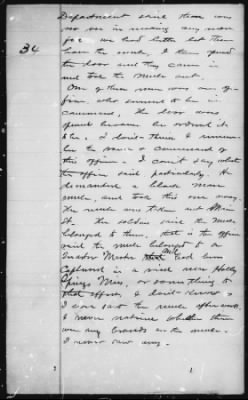 Department said there was
no use in making any more
fuss we had better let them
have the mule. I then opened
34
the door and they came in
and took the mule out.
One of these men was an of-
ficer, who seemed to be in
command, the door was
opened because he ordered it
I don't think I remem-
ber the name & command of
this officer. I can't say what
the officer said particularly. He
demanded a black mare
mule, and took this one away.
The mule was taken out
the soldiers said the mule
belonged to them, that is the officer
said the mule belonged to a
and had been
captured in a raid near Holly
Springs Miss, or something to
that effect, I don't know.
I never saw the mule afterwards
I never noticed whether there
were any brands on the mule.
I never saw any.